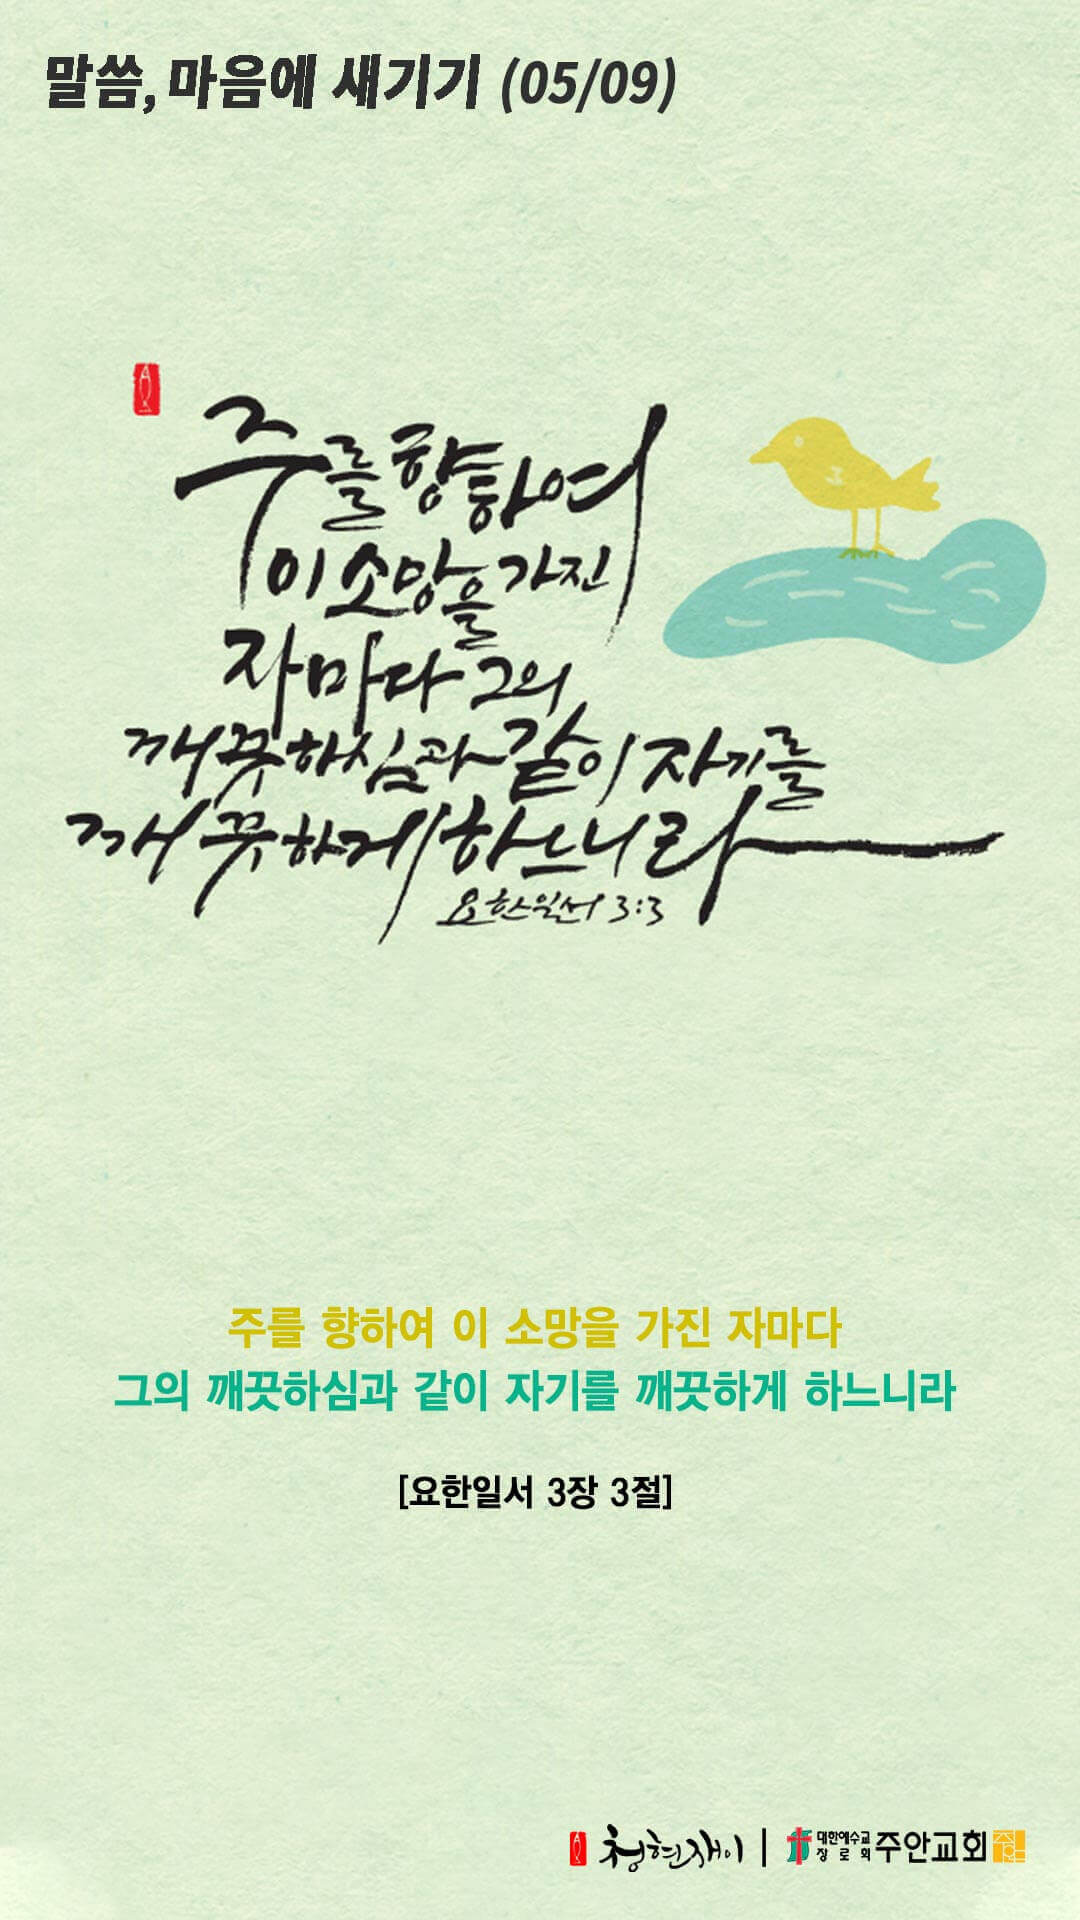 말씀, 마음에 새기기 (05/09)
주를 향하여
이 소망을 가진
자마다 그의
깨끗하심과 같이 자기를
깨끗하게 하느니라
요한일서 3:3
주를 향하여 이 소망을 가진 자마다
그의 깨끗하심과 같이 자기를 깨끗하게 하느니라
[요한일서 3장 3절]
청현재이 | 대한예수교 장로회 주안교회